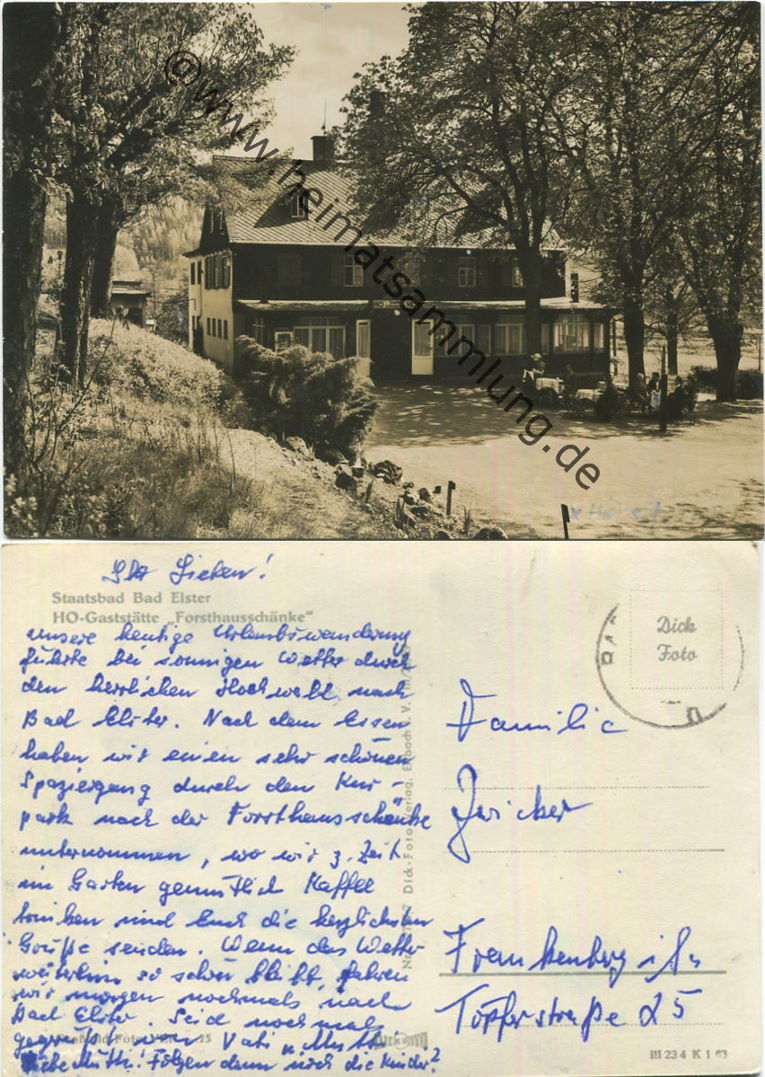 www.heimatsammlung.de
HO
Ihr Lieben!
Staatsbad Bad Elster
HO-Gaststätte „Forsthausschänke“
unsere heutige Urlaubswanderung
führte bei sonnigen Wetter durch
den herrlichen Hochwald nach
Bad Elster. Nach dem Essen
haben wir einen sehr schönen
Spaziergang durch den Kur-
park nach der Forsthausschänke
unternommen, wo wir z. Zeit
im Garten gemütlich Kaffee
trinken und Euch die herzlichsten
Grüße senden. Wenn das Wetter
weiterhin so schön bleibt, fahren
wir morgen nochmals nach
Bad Elster. Seid nochmals
gegrüßt von Vati u. Mutti
Liebe Mutti! Folgen denn noch die Kinder?
Dick-Foto-Verlag, Erlbach i. V.
Dick
Foto
Familie
Zwicker
Frankenberg i/Sa
Töpferstraße 25
III 23 4 K 1 63